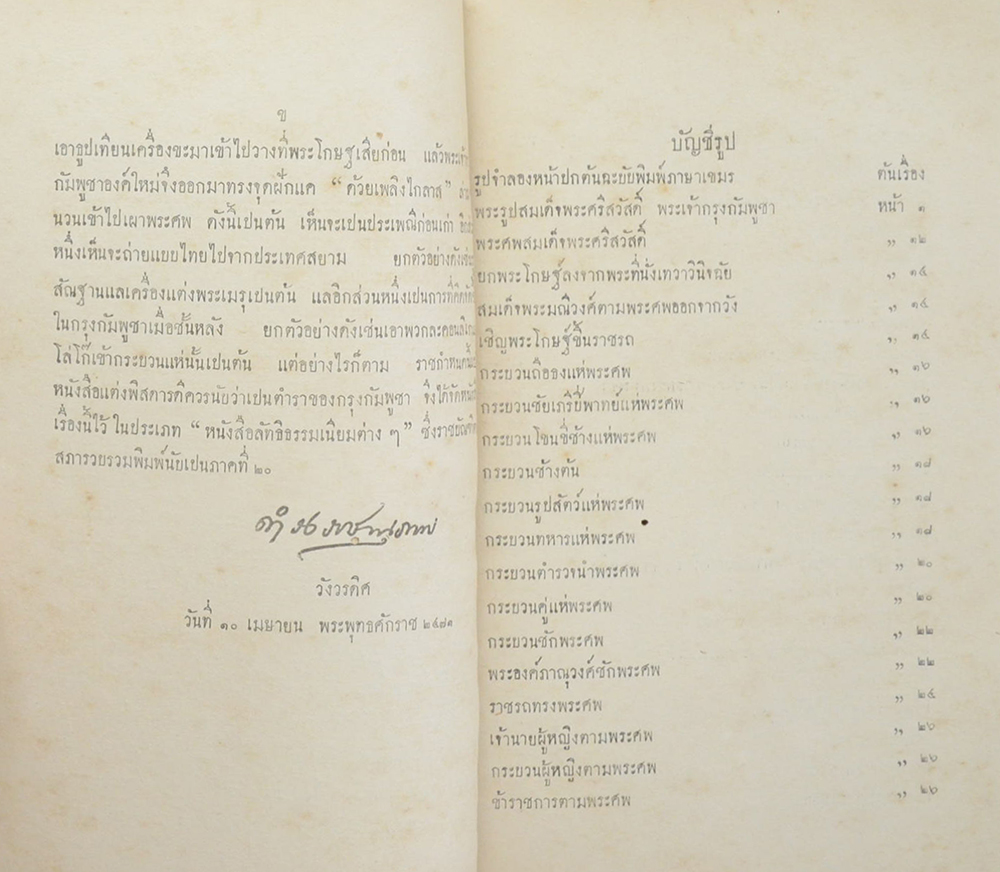 ข
เอาธูปเทียนเครื่องขะมาเข้าไปวางที่พระโกษฐเสียก่อน แล้วพระเจ้า
กัมพูชาองค์ใหม่จึงออกมาทรงจุดฝักแค “ ด้วยเพลิงไกลาส ”
นวนเข้าไปเผาพระศพ ดังนี้เปนต้น เห็นจะเปนประเพณีก่อนเก่า
หนึ่งเห็นจะถ่ายแบบไทยไปจากประเทศสยาม ยกตัวอย่างดังเช่น
สัณฐานแลเครื่องแต่งพระเมรุเปนต้น แลอีกส่วนหนึ่งเปนการที่คิด
ในกรุงกัมพูชาเมื่อชั้นหลัง ยกตัวอย่างดังเช่นเอาพวกละคอน
โล่โก๊เข้ากระบวนแห่นั้นเปนต้น แต่อย่างไรก็ตาม ราชกำหนด
หนังสือแต่งพิสดารดีควรนับว่าเปนตำราของกรุงกัมพูชา จึงได้จัด
เรื่องนี้ไว้ ในประเภท “ หนังสือลัทธิธรรมเนียมต่าง ๆ ” ซึ่งราชบัณฑิตย
สภารวบรวมพิมพ์นับเปนภาคที่ ๒๐
ดำรงราชานุภาพ
วังวรดิศ
วันที่ ๑๐ เมษายน พระพุทธศักราช ๒๔๗๑
บัญชีรูป
รูปจำลองหน้าปกต้นฉะบับพิมพ์ภาษาเขมร ต้นเรื่อง
พระรูปสมเด็จพระศรีสวัสดิ์ พระเจ้ากรุงกัมพูชา หน้า ๑
พระศพสมเด็จพระศรีสวัสดิ์ ” ๑๒
ยกพระโกษฐ์ลงจากพระที่นั่งเทวาวินิจฉัย ” ๑๔
สมเด็จพระมณีวงศ์ตามพระศพออกจากวัง ” ๑๔
เชิญพระโกษฐ์ขึ้นราชรถ ” ๑๔
กระบวนถือธงแห่พระศพ ” ๑๖
กระบวนชัยเภรีปี่พาทย์แห่พระศพ ” ๑๖
กระบวนโขนขี่ช้างแห่พระศพ ” ๑๖
กระบวนช้างต้น ” ๑๘
กระบวนรูปสัตว์แห่พระศพ ” ๑๘
กระบวนทหารแห่พระศพ ” ๑๘
กระบวนตำรวจนำพระศพ ” ๒๐
กระบวนคู่แห่พระศพ ” ๒๐
กระบวนชักพระศพ ” ๒๒
พระองค์ภาณุวงศ์ชักพระศพ ” ๒๒
ราชรถทรงพระศพ ” ๒๔
เจ้านายผู้หญิงตามพระศพ ” ๒๖
กระบวนผู้หญิงตามพระศพ ” ๒๖
ข้าราชการตามพระศพ ” ๒๖